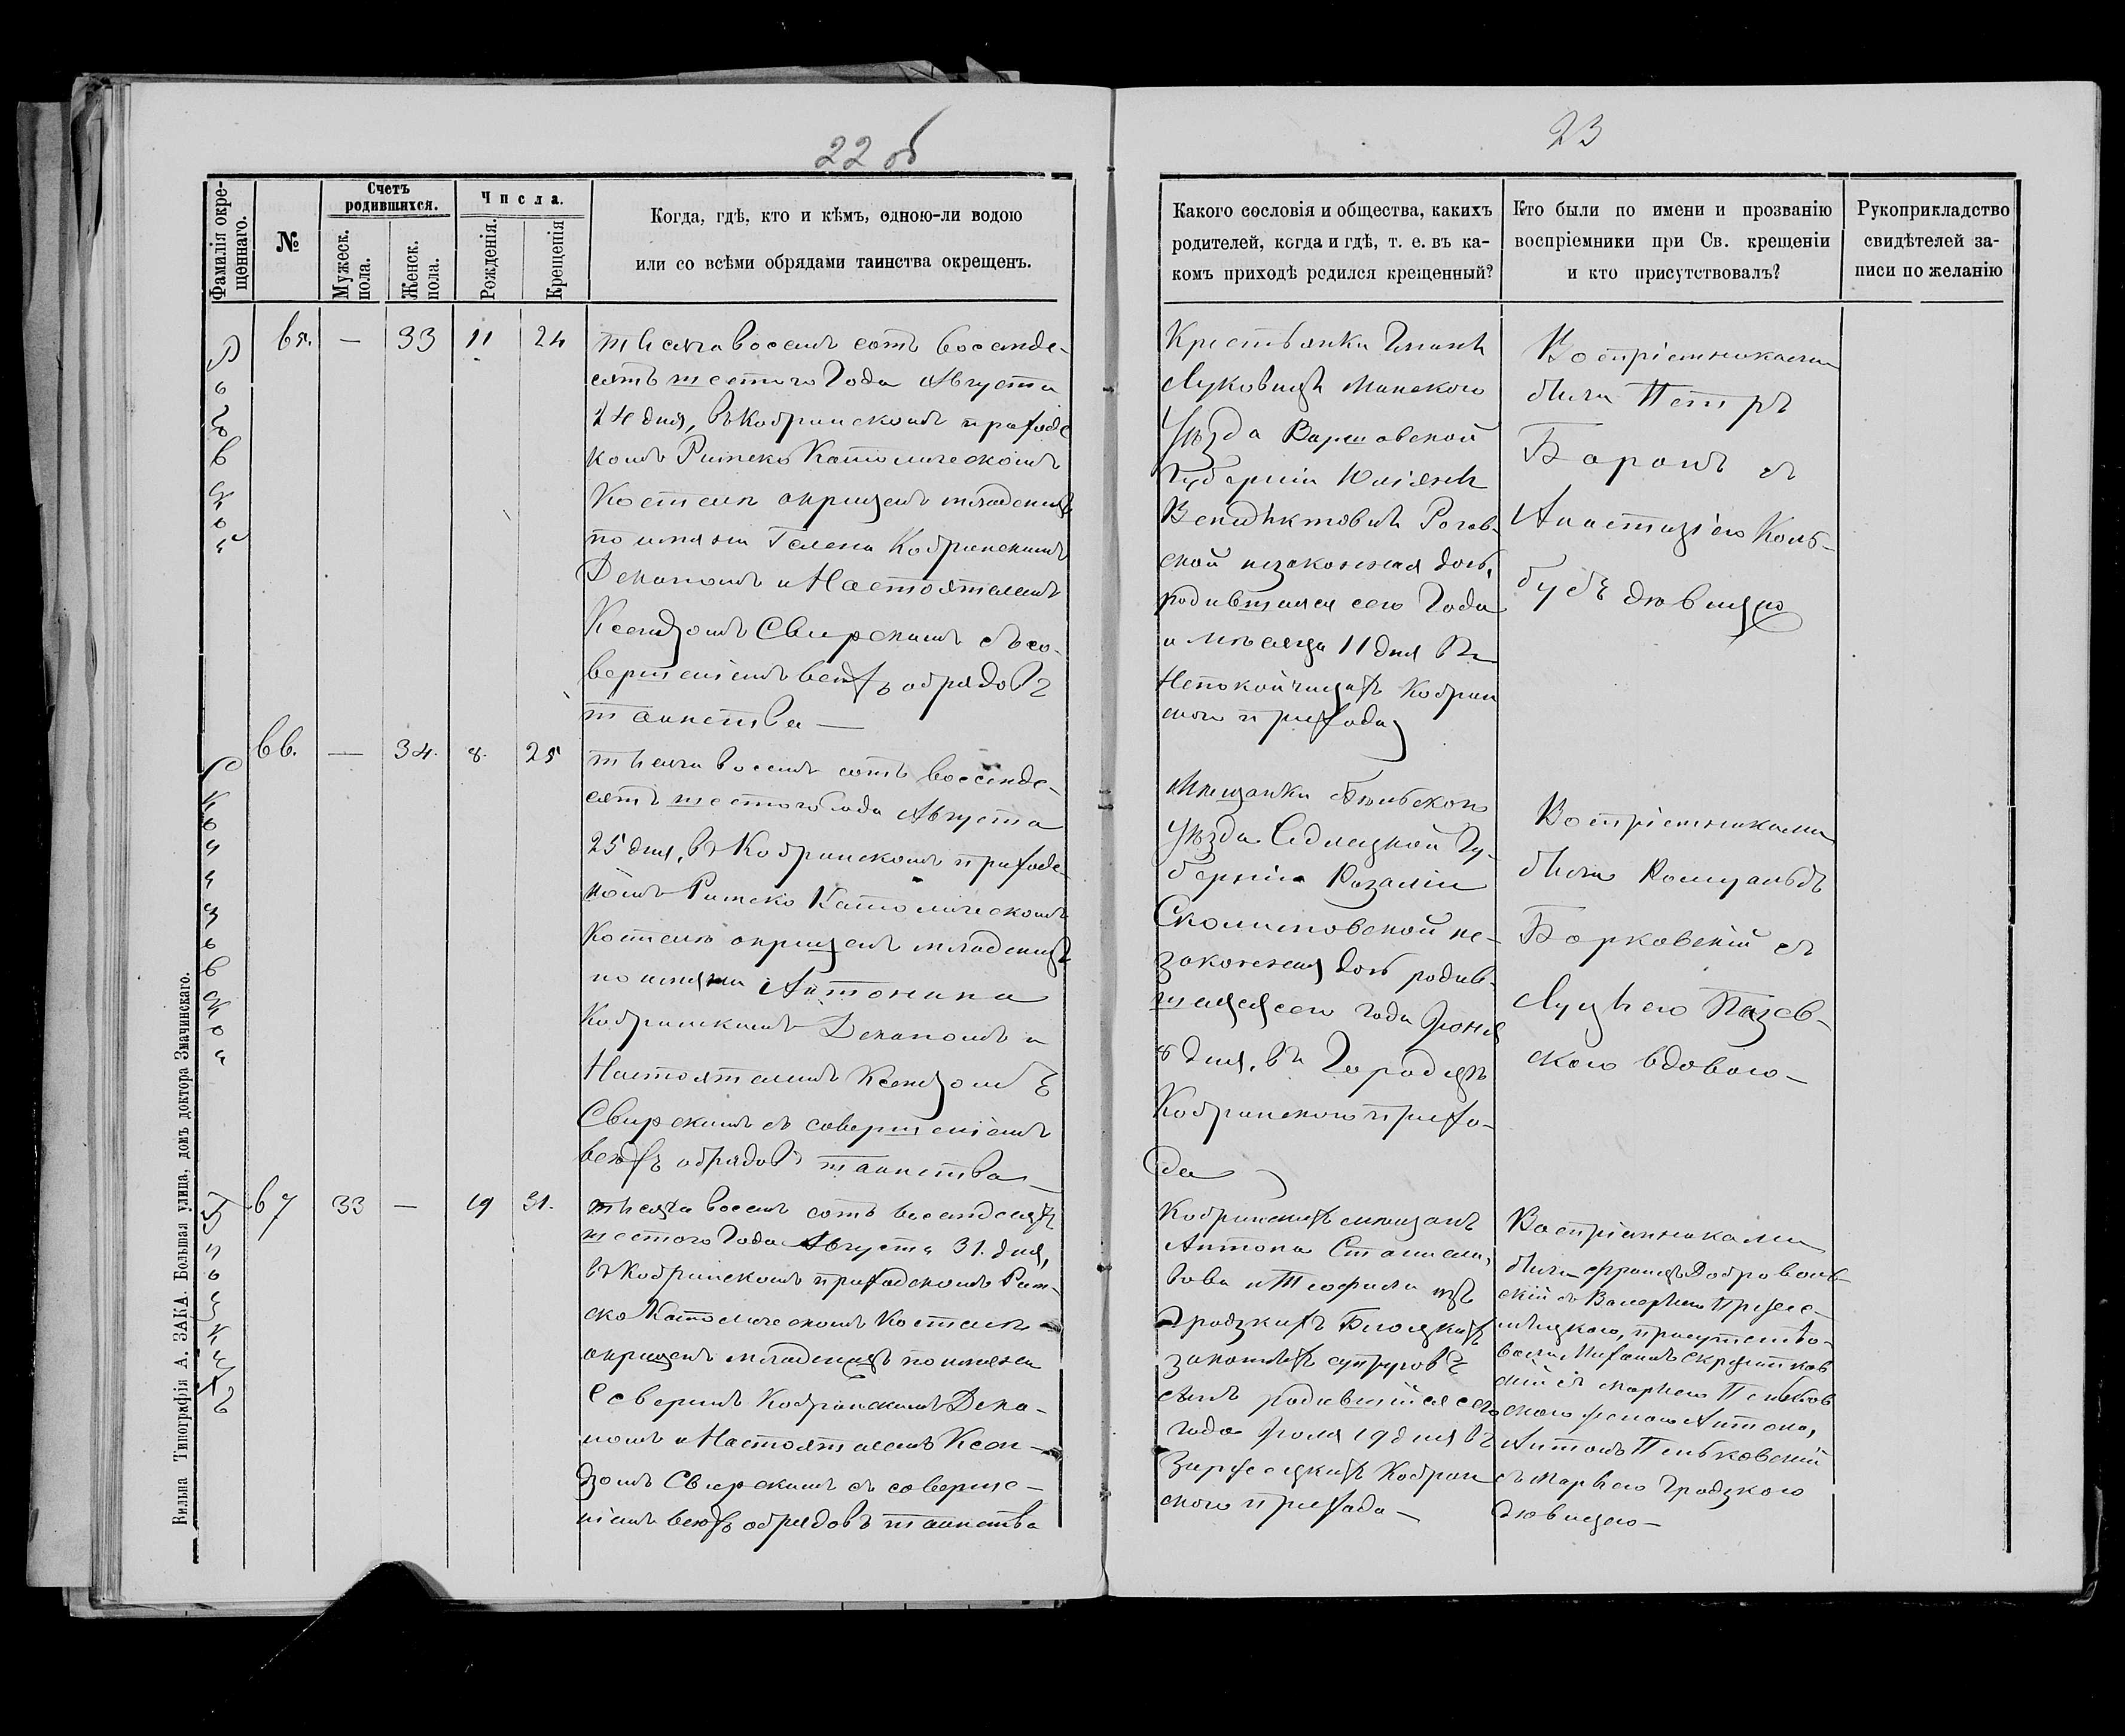 22 об
23
Фамилія окре-
щеннаго.
№
Счетъ
родившихся.
Мужеск.
пола.
Женск.
пола.
Числа.
Рожденія.
Крещенія
Когда, гдѣ, кто и кѣмъ, одною-ли водою
или со всѣми обрядами таинства окрещенъ.
Какого сословія и общества, какихъ
родителей, когда и гдѣ, т. е. въ ка-
комъ приходѣ родился крещенный?
Кто были по имени и прозванію
воспріемники при Св. крещеніи
и кто присутствовалъ?
Рукоприкладство
свидѣтелей за-
писи по желанію
Роговской
65. — 33 11 24
тысяча восемь сотъ восемде-
сятъ шестого Года Августа
24 дня, въ Кобринскомъ приходс
комъ Римско Католическомъ
Костелѣ окрещенъ младенецъ
по имяни Гелена Кобринскимъ
Деканомъ и Настоятелемъ
Ксендзомъ Свирскимъ съ со-
вершеніемъ всѣхъ обрядовъ
таинства —
Крестьянки Гмины
Луковецъ Минского
Уѣзда Варшавской
Губерніи Юліяны
Рогов-
ской незаконная доч.
родившаяся сего Года
и мѣсяца 11 дня въ
Кобрин
ского прихода
Воспріемниками
были Петръ
Баранъ съ
Анастазіею Коль-
бусъ дѣвицею
66. — 34. 8. 25
тысяча восемь сотъ восемде-
сятъ шестого Года Августа
25 дня, въ Кобринскомъ приходс
комъ Римско Католическомъ
Костелѣ окрещенъ младенецъ
по имяни Антонина
Кобринскимъ Деканомъ и
Настоятелемъ Ксендзомъ
Свирскимъ съ совершеніемъ
всѣхъ обрядовъ таинства —
Мѣщанки Бѣльского
Уѣзда Седлецкой Гу-
берніи Розаліи
Сколимовской не-
законная доч родив-
шаяся сего года Іюня
8 дня, въ Городцѣ
Кобринского прихо-
да
Воспріемниками
были Ромуальдъ
Борковскій съ
Луцыею
скою вдовою —
67 33 — 19 31.
тысяча восемь сотъ восемдесятъ
шестого Года Августа 31. дня,
въ Кобринскомъ приходскомъ Рим-
ско Католическомъ Костелѣ
окрещенъ младенецъ по имяни
Северинъ Кобринскимъ Дека-
номъ и Настоятелемъ Ксен-
дзомъ Свирскимъ съ соверше-
ніемъ всѣхъ обрядовъ таинства
Кобринскихъ мѣщанъ
Антона Станисла-
вова и Теофили изъ
Гродзкихъ
законныхъ супруговъ
сынъ родившійся сего
года Іюля 19 дня въ
Кобрин
ского прихода —
Воспріемниками
были Францъ Доброволь-
скій съ Валеріею
присутство-
вали Михаилъ
скій съ Маріею
скою женою Антона,
Антонъ Пеньковскій
съ Маріею Гродзкою
дѣвицею —
Вильна Типографія А. ЗАКА. Большая улица, домъ доктора Значинскаго.